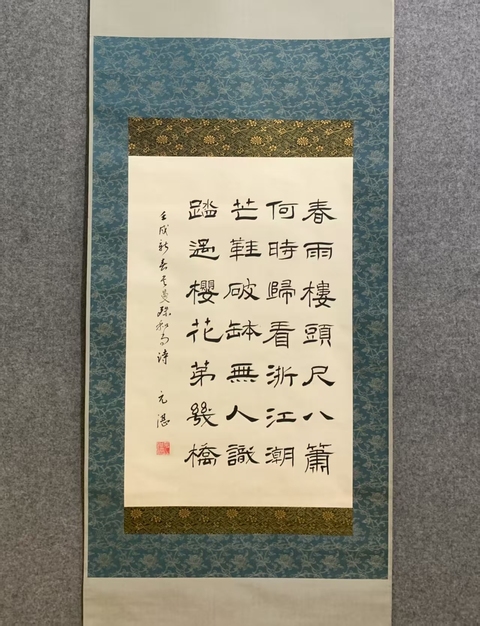 春雨樓頭尺八簫
何時歸看浙江潮
芒鞋破缽無人識
踏過櫻花第幾橋
壬戌新春书曼殊和尚詩 元湛